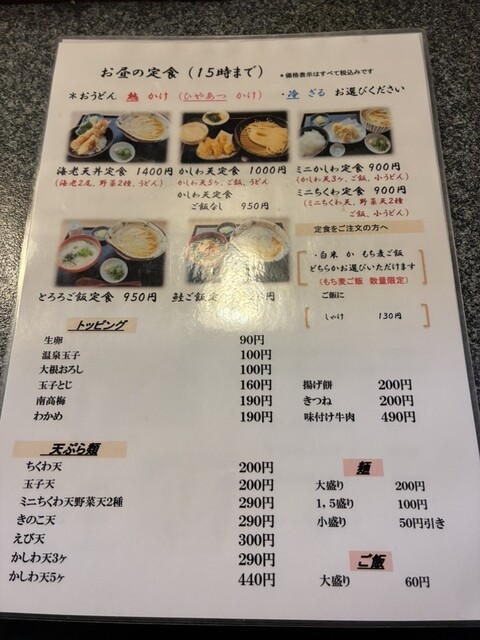 お昼の定食（15時まで） *価格表示はすべて税込みです
＊おうどん 熱 かけ（ひやあつ かけ）・冷 ざる お選びください
海老天丼定食 1400円
(海老2尾、野菜2種、うどん)
かしわ天定食 1000円
かしわ天5ヶ、ご飯、うどん
かしわ天定食
ご飯なし 950円
ミニかしわ定食 900円
(かしわ天3ヶ、ご飯、小うどん)
ミニちくわ定食 900円
(ミニちくわ天、野菜天2種
ご飯、小うどん)
とろろご飯定食 950円
鮭ご飯定食 円
定食をご注文の方へ
・白米 か もち麦ご飯
どちらかお選びいただけます
(もち麦ご飯 数量限定)
ご飯に
しゃけ 130円
トッピング
生卵 90円
温泉玉子 100円
大根おろし 100円
玉子とじ 160円
南高梅 190円
わかめ 190円
揚げ餅 200円
きつね 200円
味付け牛肉 490円
天ぷら類
ちくわ天 200円
玉子天 200円
ミニちくわ天野菜天2種 290円
きのこ天 290円
えび天 300円
かしわ天3ヶ 290円
かしわ天5ヶ 440円
麺
大盛り 200円
1,5盛り 100円
小盛り 50円引き
ご飯
大盛り 60円